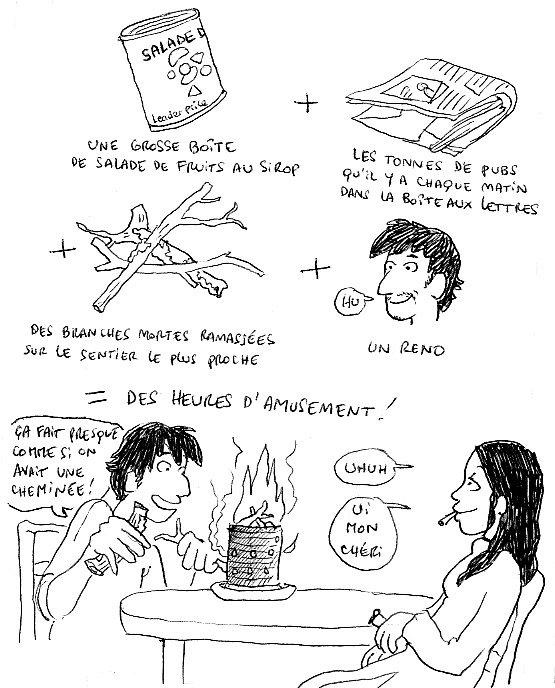 SALADE D
Leader price
+
UNE GROSSE BOÎTE
DE SALADE DE FRUITS AU SIROP
LES TONNES DE PUBS
QU'IL Y A CHAQUE MATIN
DANS LA BOÎTE AUX LETTRES
+
DES BRANCHES MORTES RAMASSÉES
SUR LE SENTIER LE PLUS PROCHE
+
HU
UN RENO
= DES HEURES D'AMUSEMENT!
ÇA FAIT PRESQUE
COMME SI ON
AVAIT UNE
CHEMINÉE!
UHUH
UI
MON
CHÉRI